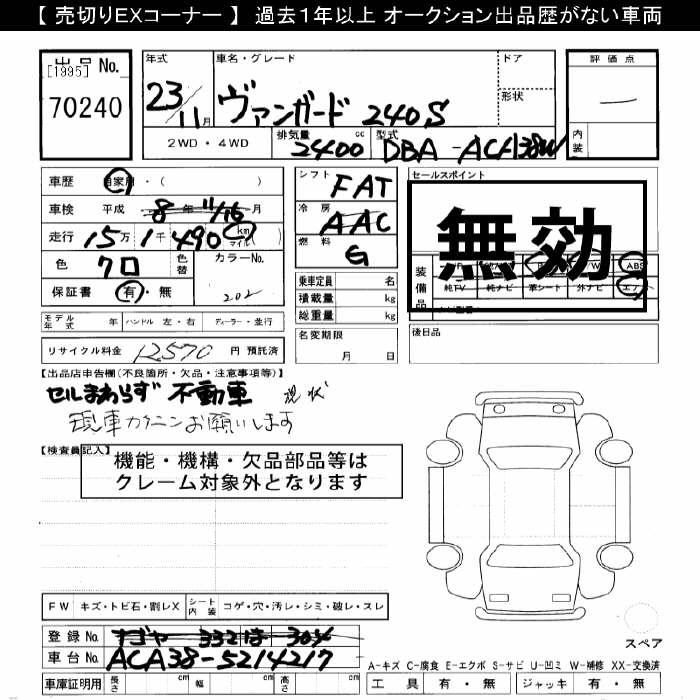 【 売切りEXコーナー 】 過去1年以上 オークション出品歴がない車両
出品 No. 年式 車名・グレード ドア 評価点
[1995]
70240 23/11月 ヴァンガード 240S 形状 —
2WD・4WD 排気量 2400 cc 型式 DBA-ACA38W 内装
車歴 自家用・( ) シフト FAT セールスポイント
車検 平成 8年 11/16月 冷房 AAC
無効
走行 15万1千490 km マイル 燃料 G
色 クロ 色替 カラーNo. 装備品 ABS
純TV 純ナビ 革シート 外ナビ エアB
保証書 有・無 202 乗車定員 名
積載量 kg
総重量 kg
モデル年式 年 ハンドル 左・右 ディーラー・並行 名変期限 月 日 後日品
リサイクル料金 12570 円 預託済
【出品店申告欄(不良箇所・欠品・注意事項等)】
セルまわらず 不動車 現状
現車カクニンお願いします
【検査員記入】
機能・機構・欠品部品等は
クレーム対象外となります
FW キズ・トビ石・割レX シート内装 コゲ・穴・汚レ・シミ・破レ・スレ
登録 No. ナゴヤ 332 は
スペア
車台 No. ACA38-5214217
A-キズ C-腐食 E-エクボ S-サビ U-凹ミ W-補修 XX-交換済
車庫証明用 長さ cm 幅 cm 高さ cm 工具 有・無 ジャッキ 有・無